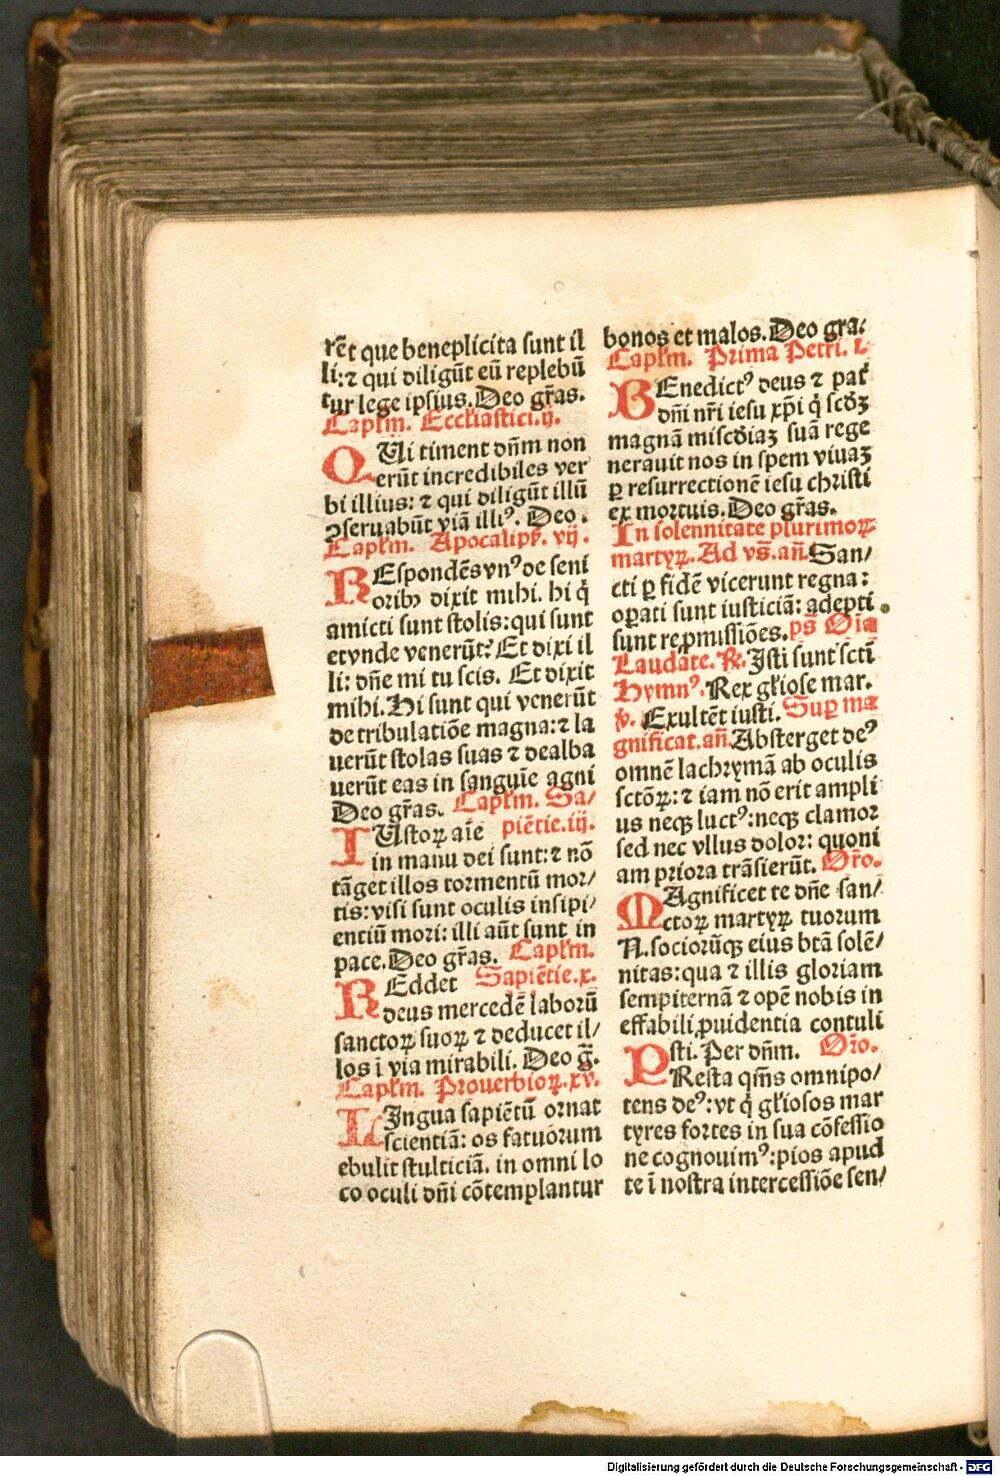 rēt que beneplicita sunt il
li: ⁊ qui diligūt eū replebū
tur lege ipsius. Deo gr̄as.
Capl'm. Eccl'iastici. ij.
QUi timent dn̄m non
erūt incredibiles ver
bi illius: ⁊ qui diligūt illū
ꝯseruabūt viā illiꝰ. Deo.
Capl'm. Apocalipṡ. vij.
REspondēs vnꝰ de seni
oribꝫ dixit mihi. hi q̇
amicti sunt stolis: qui sunt
etvnde venerūt? Et dixi il
li: dn̄e mi tu scis. Et dixit
mihi. Hi sunt qui venerūt
de tribulatiōe magna: ⁊ la
uerūt stolas suas ⁊ dealba
uerūt eas in sanguīe agni
Deo gr̄as. Capl'm. Sa/
piētie. iij.
IUstoꝝ aīe
in manu dei sunt: ⁊ nō
tāget illos tormentū mor/
tis: visi sunt oculis insipi/
entiū mori: illi aūt sunt in
pace. Deo gr̄as. Capl'm.
REddet Sapiētie. x.
deus mercedē laborū
sanctoꝝ suoꝝ ⁊ deducet il/
los ī via mirabili. Deo ḡ.
Capl'm. Prouerbioꝝ. xv.
LIngua sapiētū ornat
scientiā: os fatuorum
ebulit stulticiā. in omni lo
co oculi dn̄i cōtemplantur
bonos et malos. Deo gra.
Capl'm. Prima Petri. i.
BEnedictꝰ deus ⁊ pat̄
dn̄i nr̄i iesu xp̄i q̇ scd̄ꝫ
magnā misc̄diaꝫ suā rege
nerauit nos in spem viuaꝫ
ꝑ resurrectionē iesu christi
ex mortuis. Deo gr̄as.
In solennitate plurimoꝝ
martyꝝ. Ad vs̄. an̄. San/
cti ꝑ fidē vicerunt regna:
oꝑati sunt iusticiā: adepti
sunt repmissiōes. ps̄ Oīa
Laudate. ℟. Isti sunt sctī
Hymnꝰ. Rex gl'iose mar.
℣. Exultēt iusti. Suꝑ ma
gnificat. an̄. Absterget deꝰ
omnē lachrymā ab oculis
sctōꝝ: ⁊ iam nō erit ampli
us neqꝫ luctꝰ: neqꝫ clamor
sed nec vllus dolor: quoni
am priora trāsierūt. Or̄o.
MAgnificet te dn̄e san/
ctoꝝ martyꝝ tuorum
N. sociorūqꝫ eius btā solē/
nitas: qua ⁊ illis gloriam
sempiternā ⁊ opē nobis in
effabili ꝓuidentia contuli
sti. Per dn̄m. Or̄o.
PResta qs̄ms omnipo/
tens deꝰ: vt q̇ gl'iosos mar
tyres fortes in sua cōfessio
ne cognouimꝰ: pios apud
te ī nostra intercessiōe sen/
Digitalisierung gefördert durch die Deutsche Forschungsgemeinschaft - DFG